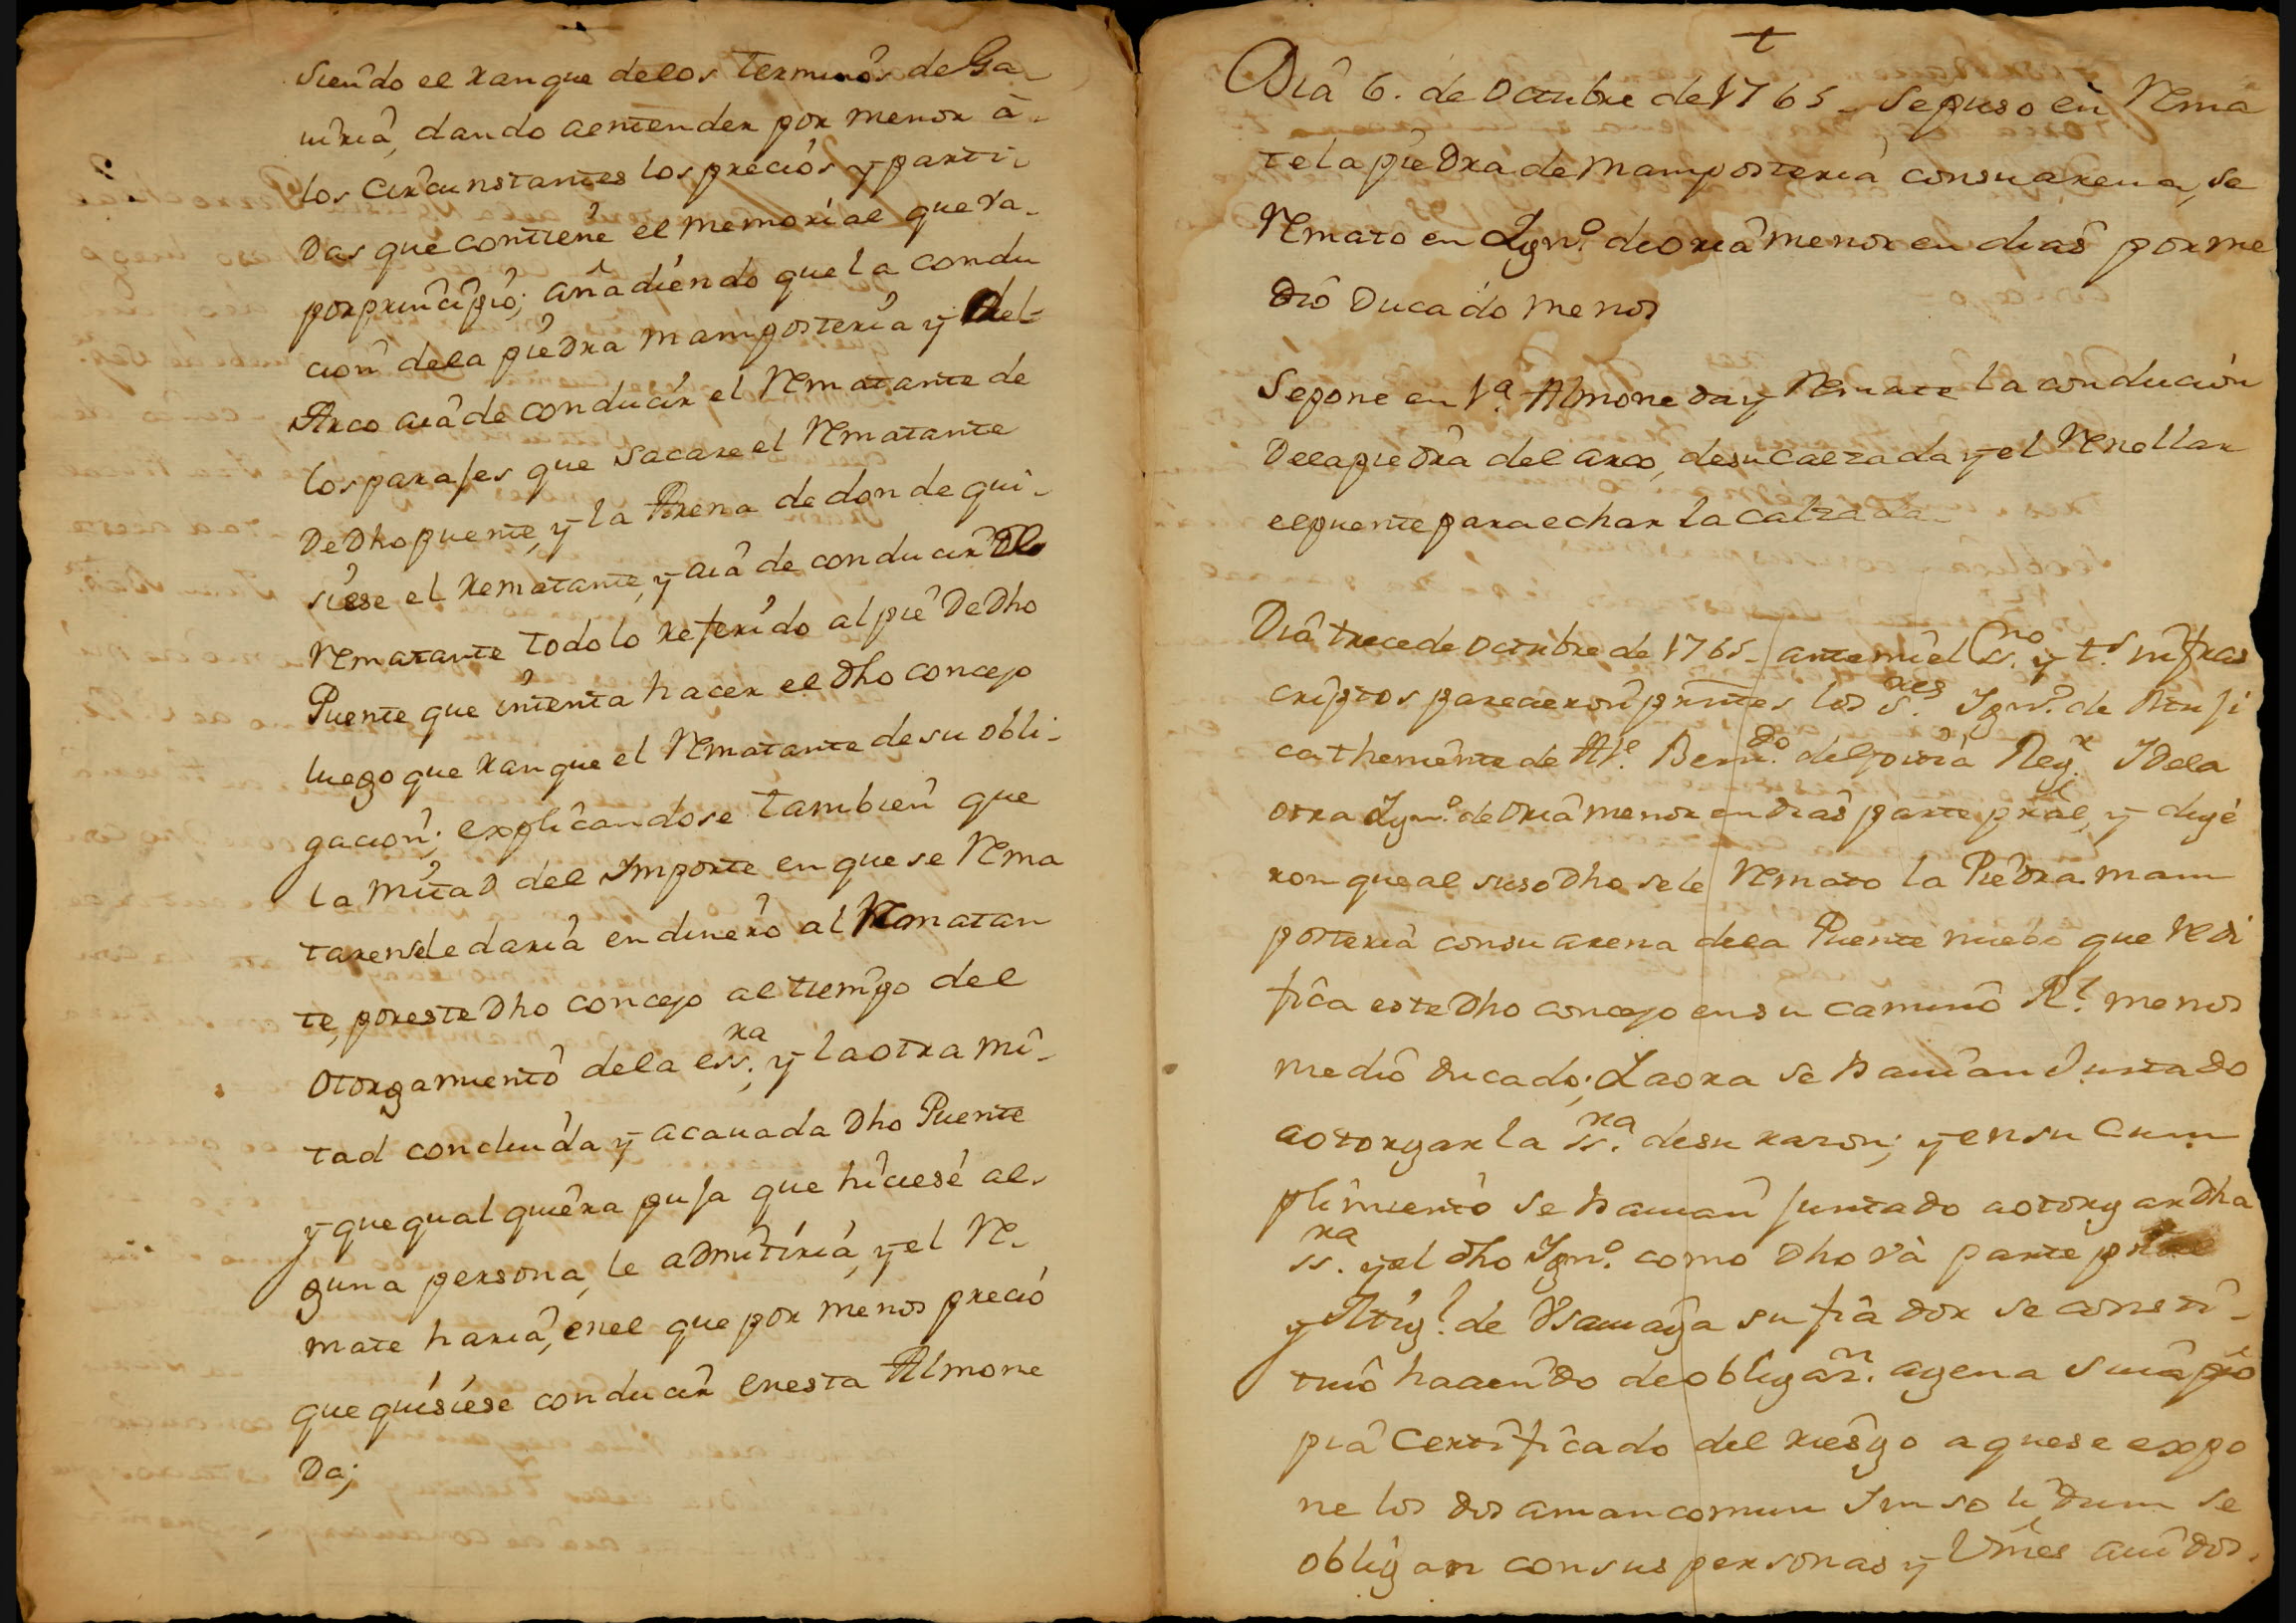 siendo el ranque de los terminos de Ga-
uiria, dando aentender por menor à-
los circunstantes los precios y parti-
Das que contiene el memorial que va-
por principio; añadiendo que la condu
cion dela piedra mamposteria y del
Arco aia de conducir el Rematante de
los parajes que sacare el Rematante
De Dho puente, y la Arena de donde qui-
siese el rematante, y aia de conducir Dho
Rematante todo lo referido al pie De Dho
Puente que intenta hacer el dho concejo
luego que ranque el Rematante de su obli-
gacion; explicandose tambien que
la mitad del Importe en que se Rema
taren se le daria en dinero al Rematan
te, por este Dho concejo al tiempo del
otorgamiento dela ess.ra y la otra mi-
tad concluida y acauada Dho Puente
y que qual quiera puja que hiciese al-
guna persona, le admitiria, y el Re-
mate haria, enel que por menos precio
que quisiese conducir enesta Almone
Da;
Dia 6. de Octubre de 1765- se puso en Rema
te la piedra de mamposteria con su arena, se
Remato en Ygn.º de oria menor en dias por me
dio Ducado menos
Se pone en 1.ª Almoneda y Remate la condución
Dela piedra del arco, de su calzada y el Rellenar
el puente para echar la calzada-
Dia trece de octubre de 1765- ante mi el ss.no y t.s infras
criptos parecieron prntes los S.res Ygn.º de
ca theniente de Al.e Bern.do del Reg.r Y Dela
otra Ygn.º de Oria menor en dias parte pral, y dijé
ron que al susodho se le Remato la Piedra mam
posteria con su arena dela Puente nuebo que Redi
fica este Dho concejo en su camino R.l menos
medio ducado; Y aora se hauian Juntado
a otorgar la ss.ra de su razon; y en su cum
plimiento se hauian juntado a otorgar Dha
ss.ra y el dho Ygn.º como Dho và parte
y Mig.l de Vsauiaga su fiador se consti-
tuió haciendo de obligan. agena suia pro
pia certificado del riesgo a que se expo
ne los dos a man comun Insolidum se
obligan con sus personas y Vines auidos.